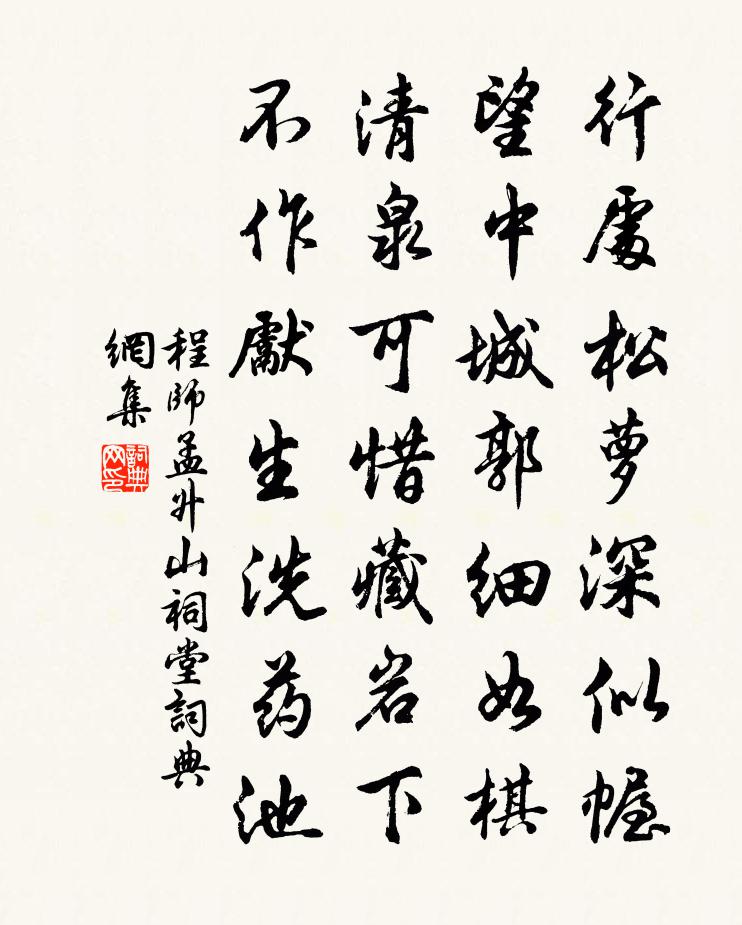 行處松萝深似幄
望中城郭细如棋
清泉可惜藏岩下
不作獻生洗药池
程師孟升山祠堂詞典
網集
詞典
网印